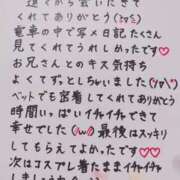 遠くから会いにきて
くれてありがとう
電車の中で写メ日記たくさん
見てくれてうれしかったです♡
お兄さんとのキス気持ち
よくてずっとしちゃいました
ベットでも密着してくれてありがとう
時間いっぱいイチャイチャできて
幸せでした(ω)最後はスッキリ
してもらえてよかった♡♡
次はコスプレ着たままイチャイチャ
しましょうね